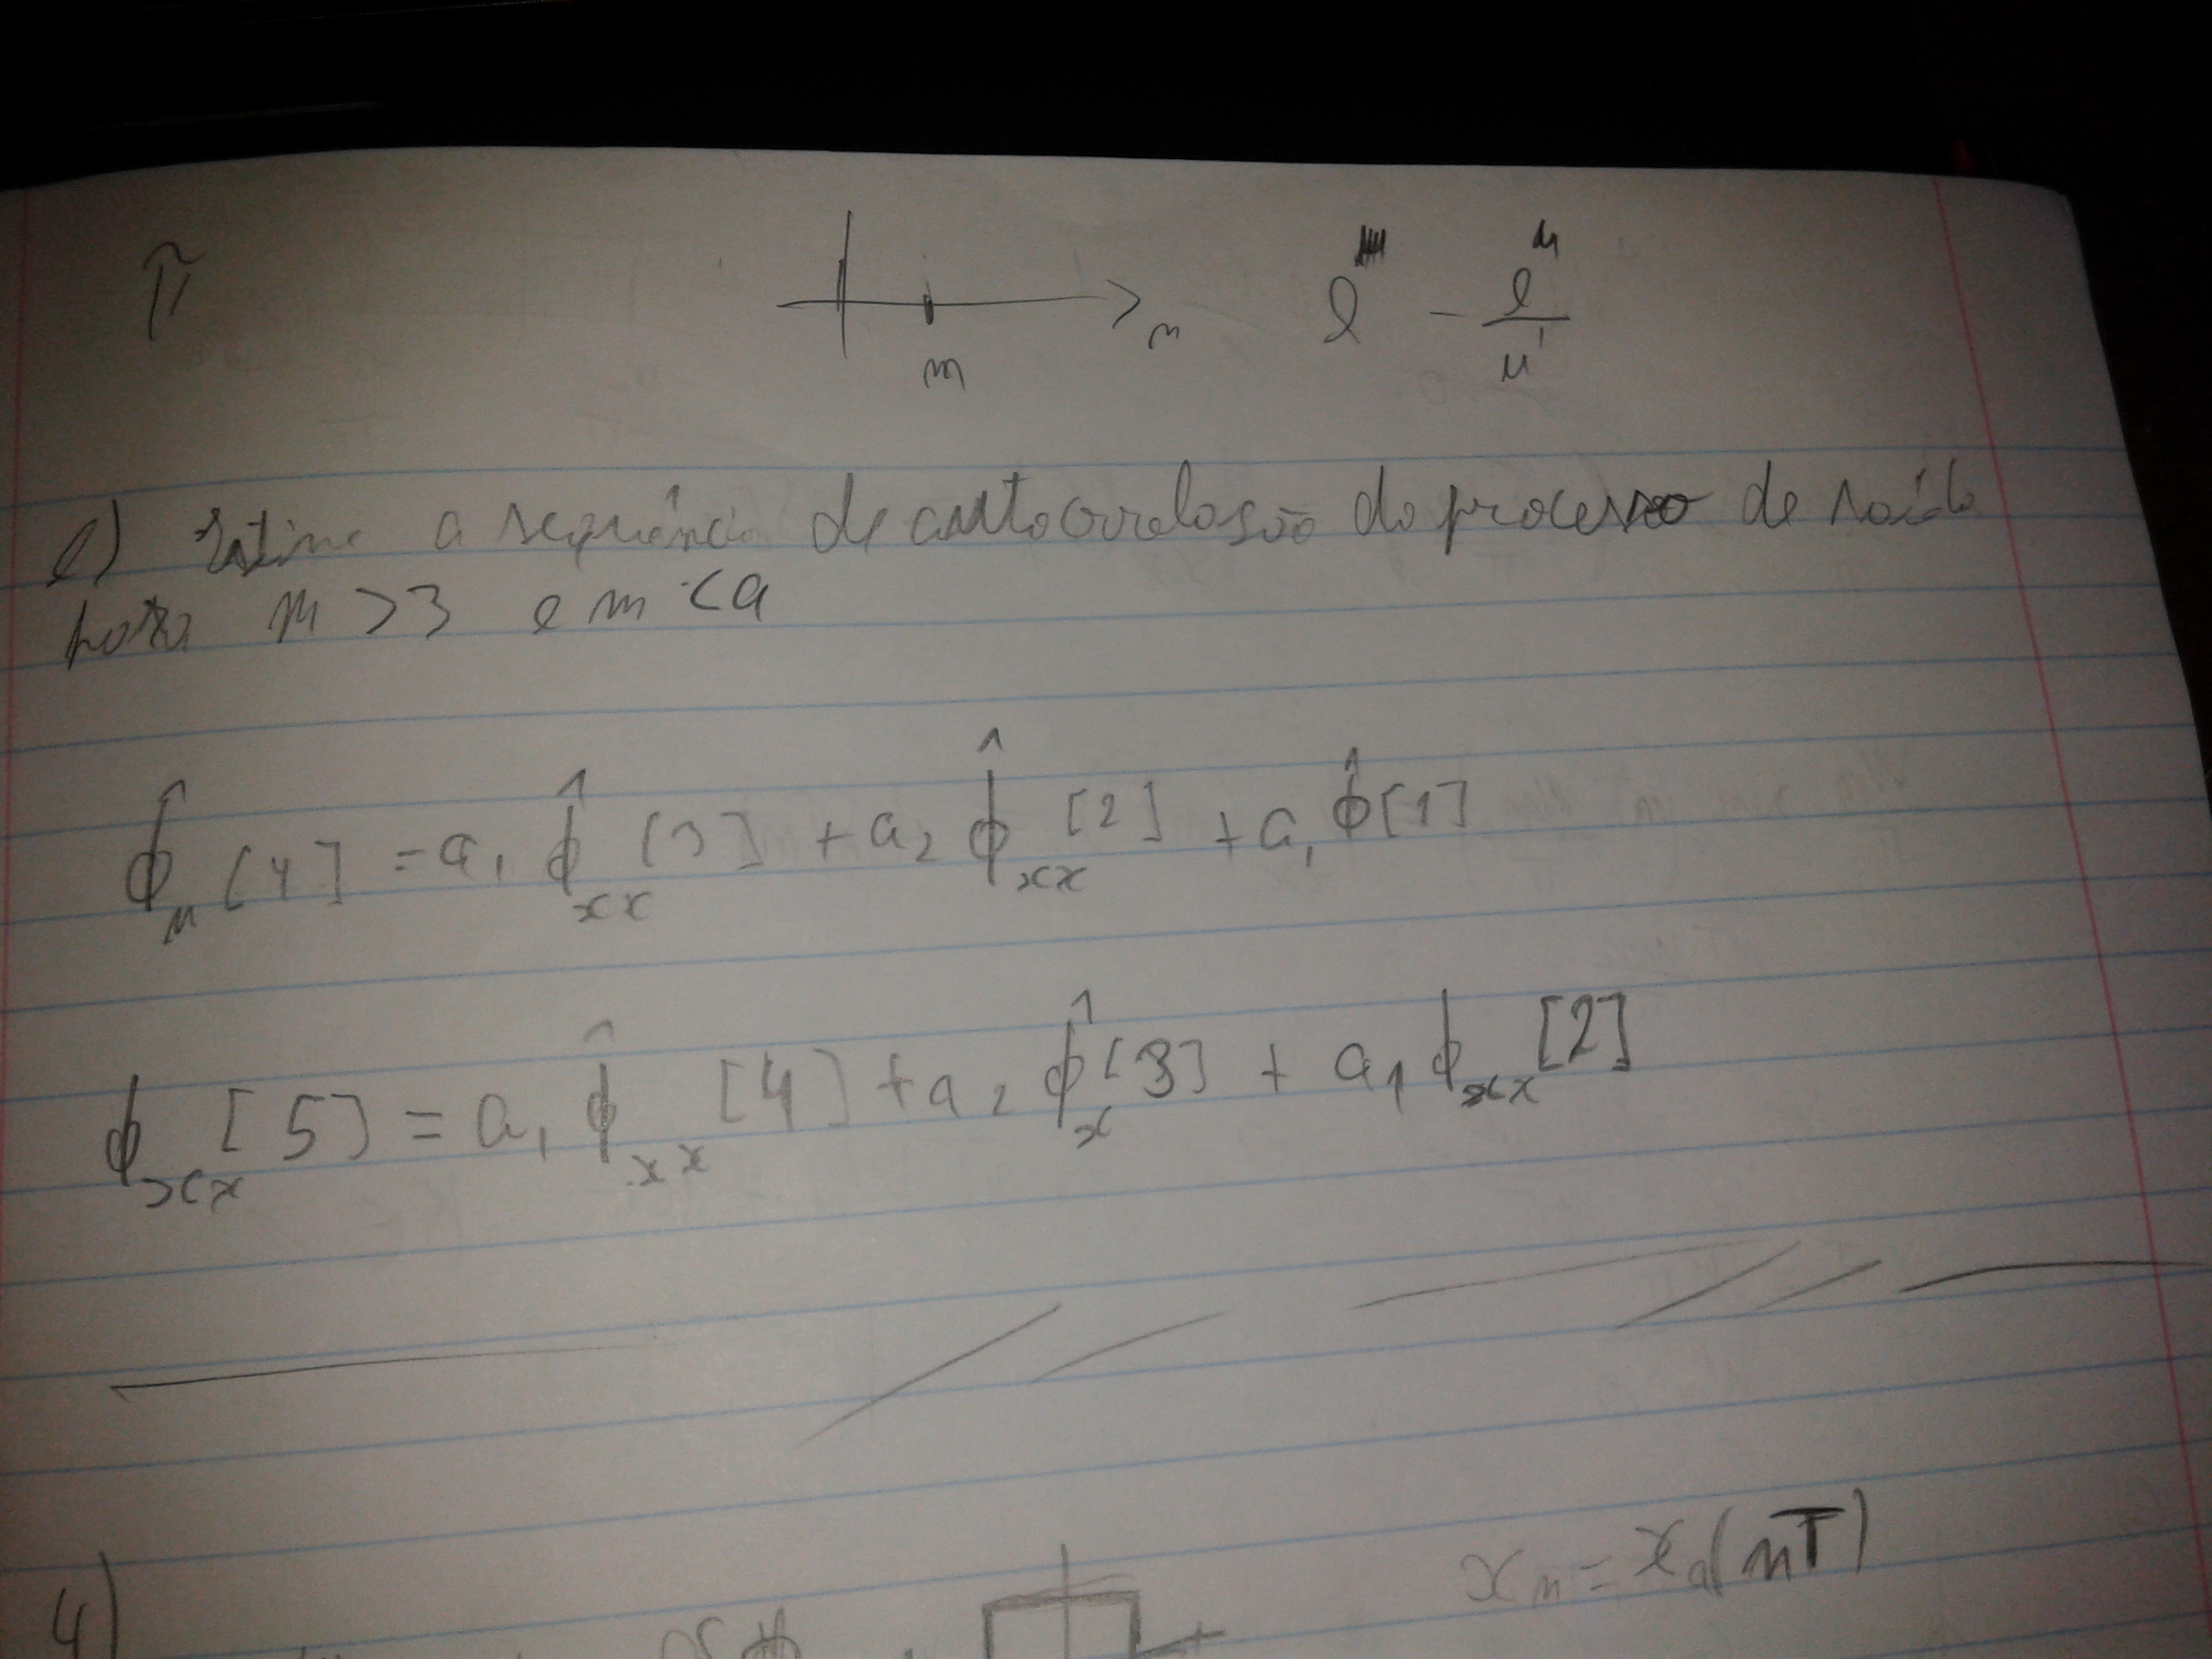 π
m n
e) Estime a sequência de autocorrelação do processo de saída
para m > 3 e m < a
φ̂ [4] = a₁ φ̂xx [3] + a₂ φ̂xx [2] + a₁ φ̂[1]
φxx[5] = a₁ φ̂xx [4] + a₂ φ̂x[3] + a₁ φxx[2]
4)
xn = xa(nT)